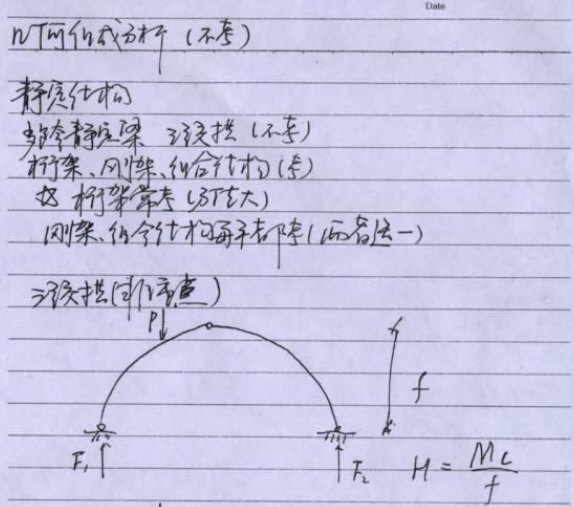 Date
几何组成分析(不考)
静定结构
多跨静定梁 三铰拱(不考)
桁架、刚架、组合结构(考)
桁架常考(分值大)
刚架、组合结构每年都考(两者选一)
三铰拱(非重点)
P
f
F₁
F₂
H = Mc/f